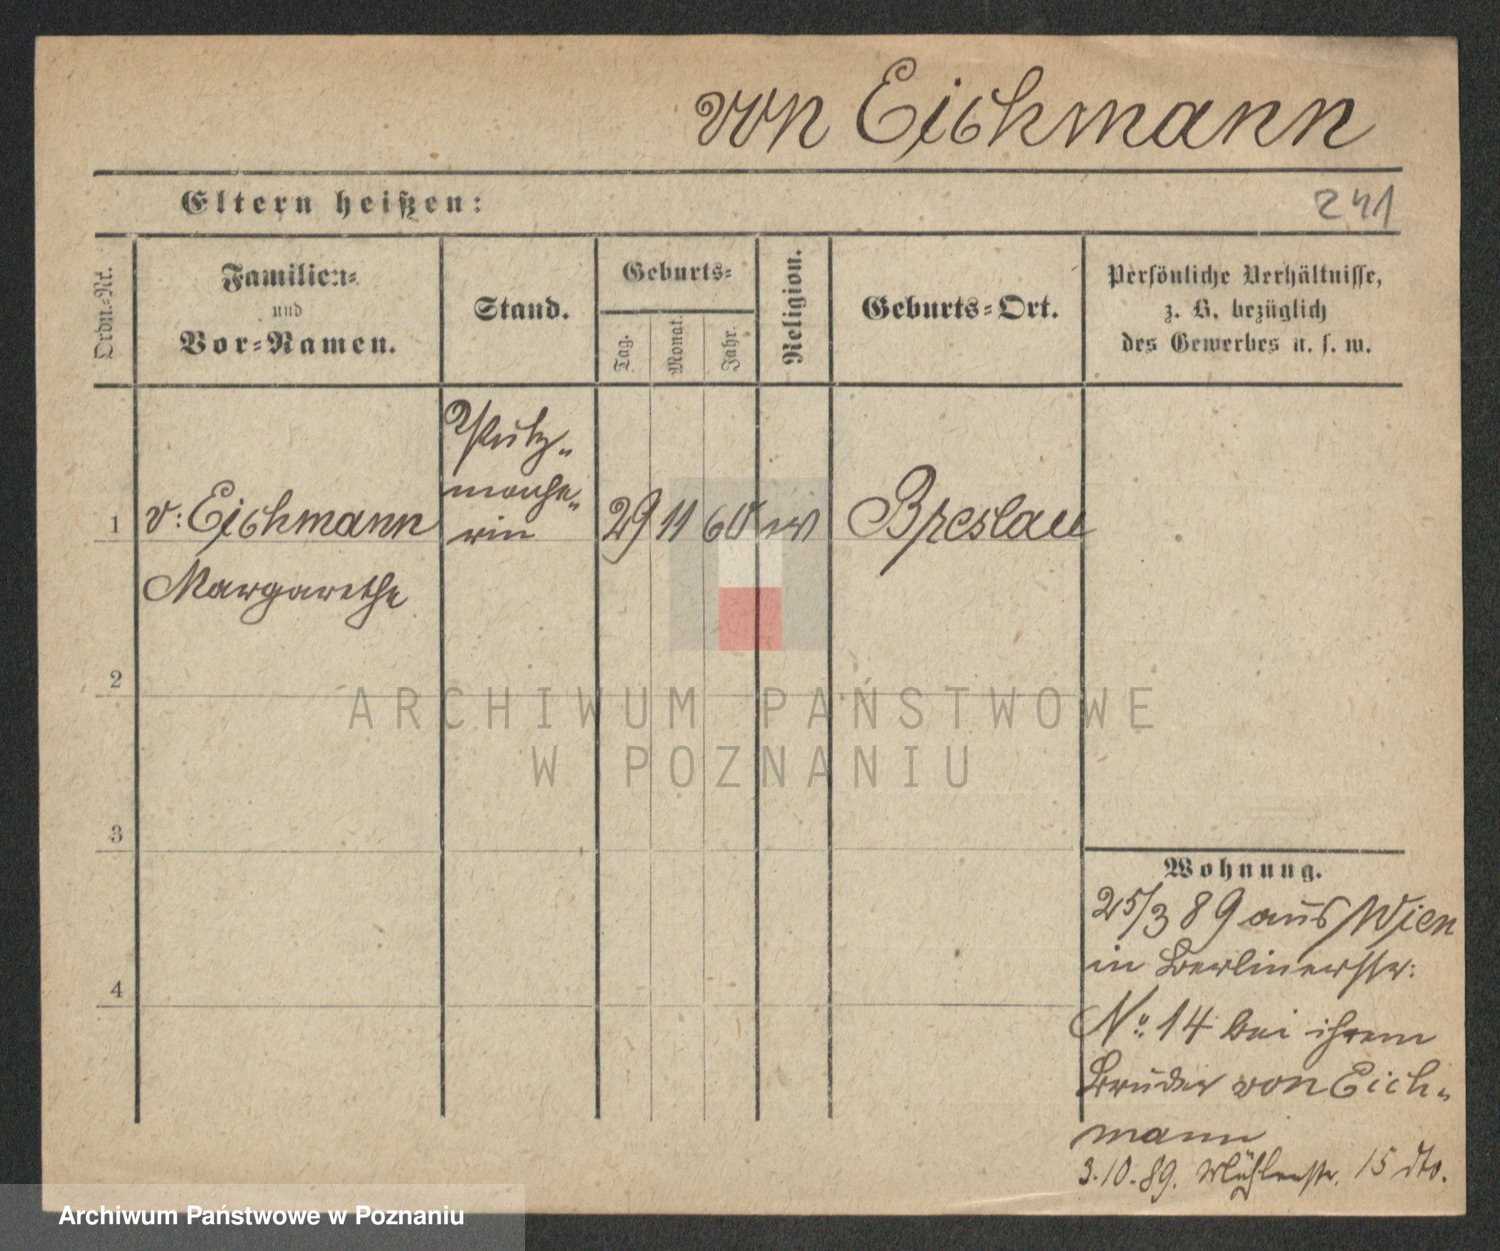 von Eichmann
Eltern heißen:
241
Ordn.-Nr.
Familien-
und
Vor-Namen.
Stand.
Geburts-
Tag.
Monat.
Jahr.
Religion.
Geburts-Ort.
Persönliche Verhältnisse,
z. B. bezüglich
des Gewerbes u. s. w.
1
v: Eichmann
Margarethe
Putz-
mache-
rin
29
11
60
ev
Breslau
2
3
4
Wohnung.
25/3 89 aus Wien
in Berlinerstr:
No. 14 bei ihrem
Bruder von Eich-
mann
3.10.89. Mühlenstr. 15 dto.
ARCHIWUM PAŃSTWOWE
W POZNANIU
Archiwum Państwowe w Poznaniu